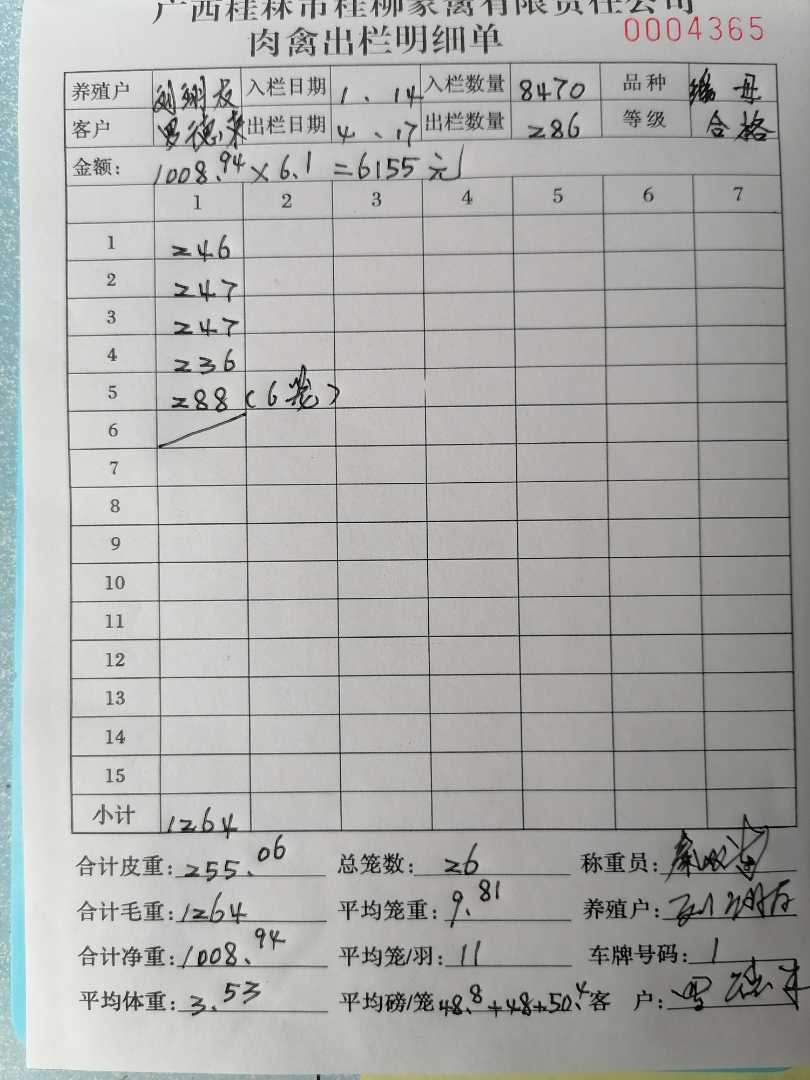 广西桂林市桂柳家禽有限责任公司
肉禽出栏明细单 0004365
养殖户 入栏日期 1.14 入栏数量 8470 品种 母
客户 罗德来 出栏日期 4.17 出栏数量 286 等级 合格
金额: 1008.94×6.1=6155元
1 2 3 4 5 6 7
1 246
2 247
3 247
4 236
5 288(6笼)
6
7
8
9
10
11
12
13
14
15
小计 1264
合计皮重: 255.06 总笼数: 26 称重员:
合计毛重: 1264 平均笼重: 9.81 养殖户:
合计净重: 1008.94 平均笼/羽: 11 车牌号码: 1
平均体重: 3.53 平均磅/笼 48.8+48+50.4 客 户: